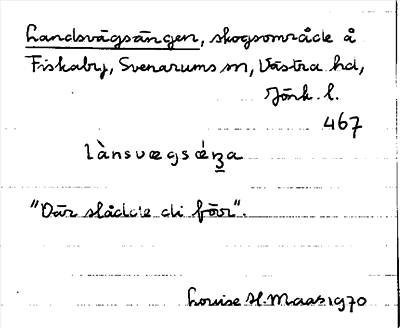 Landsvägsängen, skogsområde å
Fiskaby, Svenarums sn, Västra hd,
Jönk. l.
467
lànsvægsǽŋa
"Där slådde di förr".
Louise H. Maas 1970